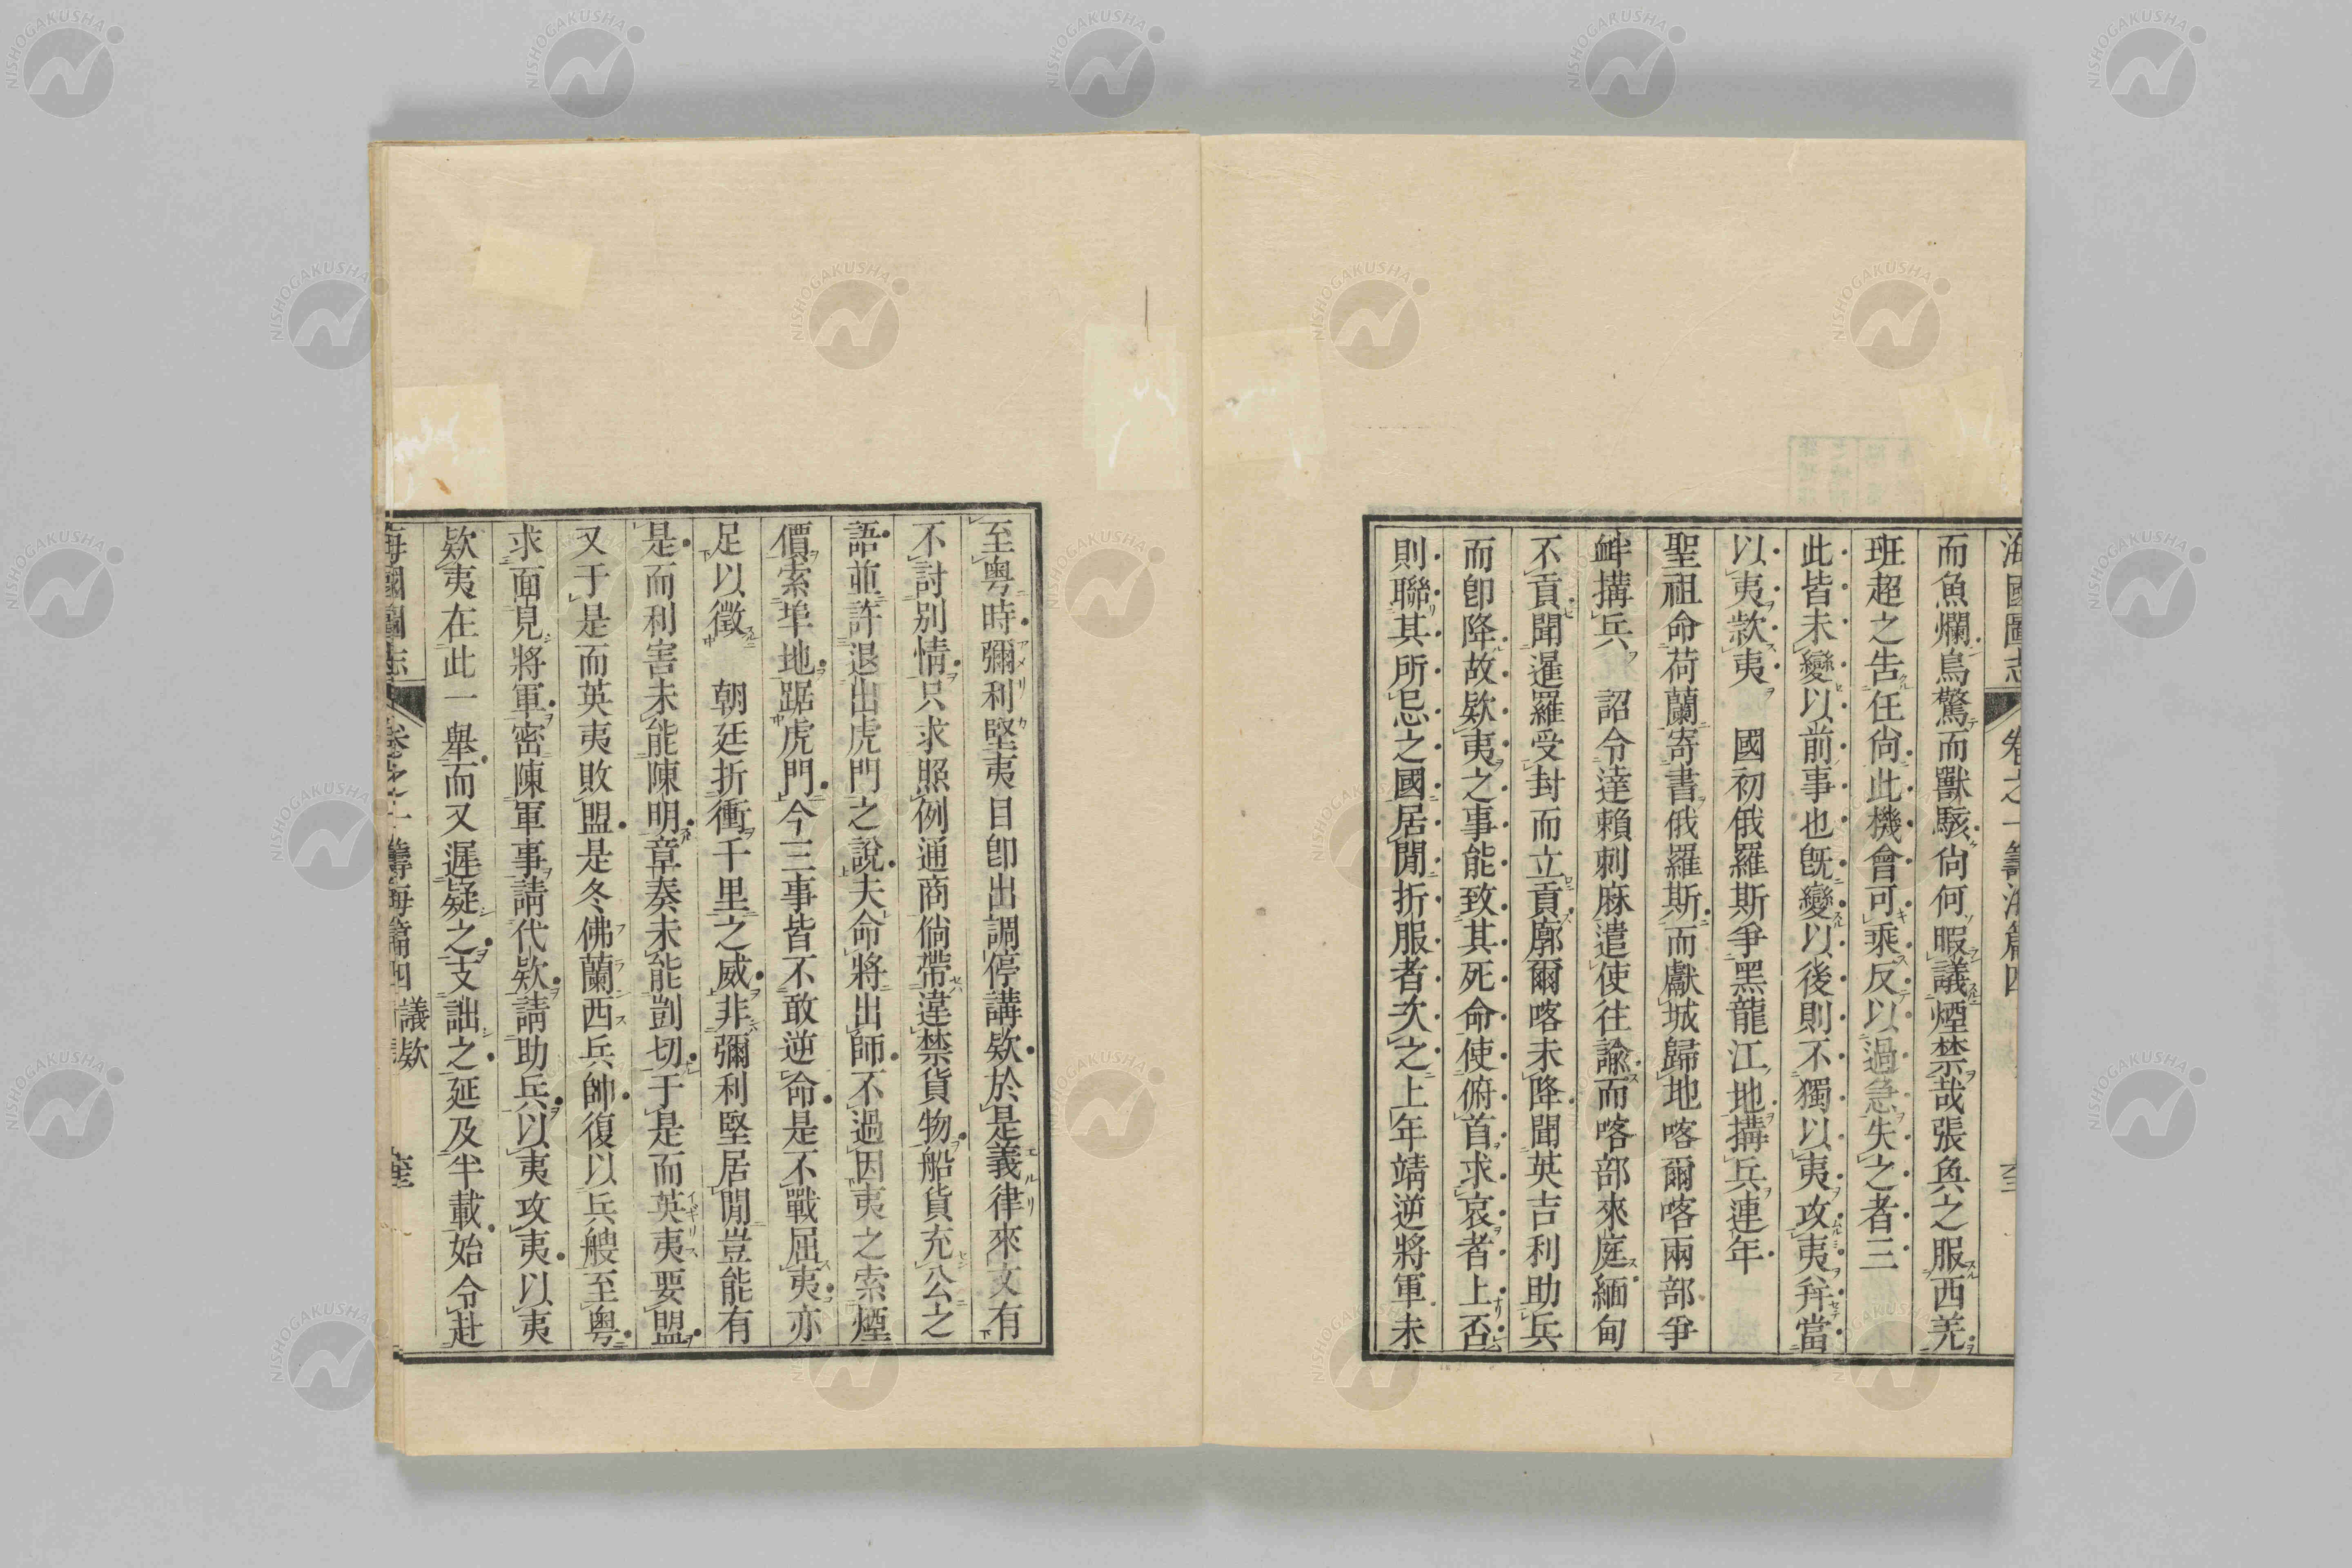 海國圖志 卷之一 籌海篇四
而魚爛鳥驚而獸駭尙何暇議煙禁哉張奐之服西羌
班超之告任尙此機會可乘反以過急失之者三
此皆未變以前事也旣變以後則不獨以夷攻夷幷當
以夷款夷 國初俄羅斯爭黑龍江地搆兵連年
聖祖命荷蘭寄書俄羅斯而獻城歸地喀爾喀兩部爭
衅搆兵 詔令達賴刺麻遣使往諭而喀部來庭緬甸
不貢聞暹羅受封而立貢廓爾喀未降聞英吉利助兵
而卽降故欵夷之事能致其死命使俯首求哀者上否
則聯其所忌之國居閒折服者次之上年靖逆將軍未
至粵時彌利堅夷目卽出調停講欵於是義律來文有
不討別情只求照例通商倘帶違禁貨物船貨充公之
語並許退出虎門之說夫命將出師不過因夷之索煙
價索埠地踞虎門今三事皆不敢逆命是不戰屈夷亦
足以徵 朝廷折衝千里之威非彌利堅居閒豈能有
是而利害未能陳明章奏未能剴切于是而英夷要盟
又于是而英夷敗盟是冬佛蘭西兵帥復以兵艘至粵
求面見將軍密陳軍事請代欵請助兵以夷攻夷以夷
欵夷在此一舉而又遲疑之支詘之延及半載始令赴
海國圖志 卷之一 籌海篇四 議欵
アメリカ
エルリ
フランス
イギリス
NISHOGAKUSHA